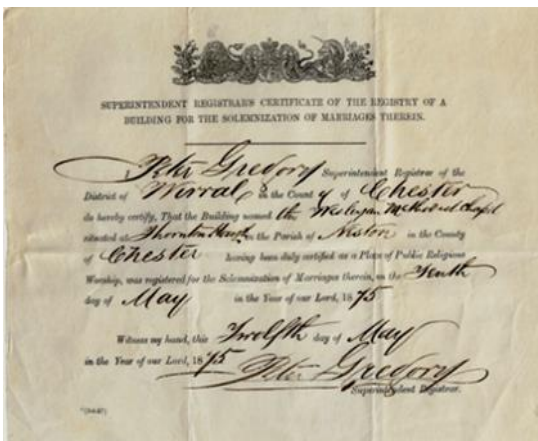 SUPERINTENDENT REGISTRAR'S CERTIFICATE OF THE REGISTRY OF A
BUILDING FOR THE SOLEMNIZATION OF MARRIAGES THEREIN.
Peter Gregory Superintendent Registrar of the
District of Wirral in the County of Chester
do hereby certify, That the Building named the Wesleyan Methodist Chapel
situated at Thornton Hough in the Parish of Neston in the County
of Chester having been duly certified as a Place of Public Religious
Worship, was registered for the Solemnization of Marriages therein, on the Tenth
day of May in the Year of our Lord, 1875
Witness my hand, this Twelfth day of May
in the Year of our Lord, 1875
Peter Gregory
Superintendent Registrar.